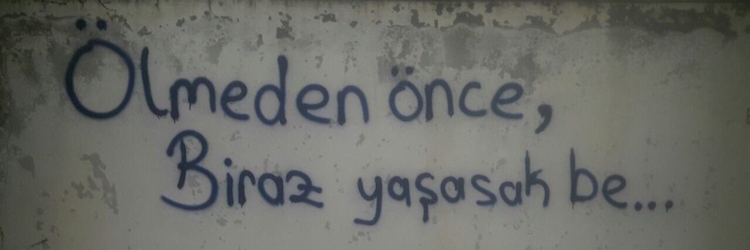 Ölmeden önce,
Biraz yaşasak be...